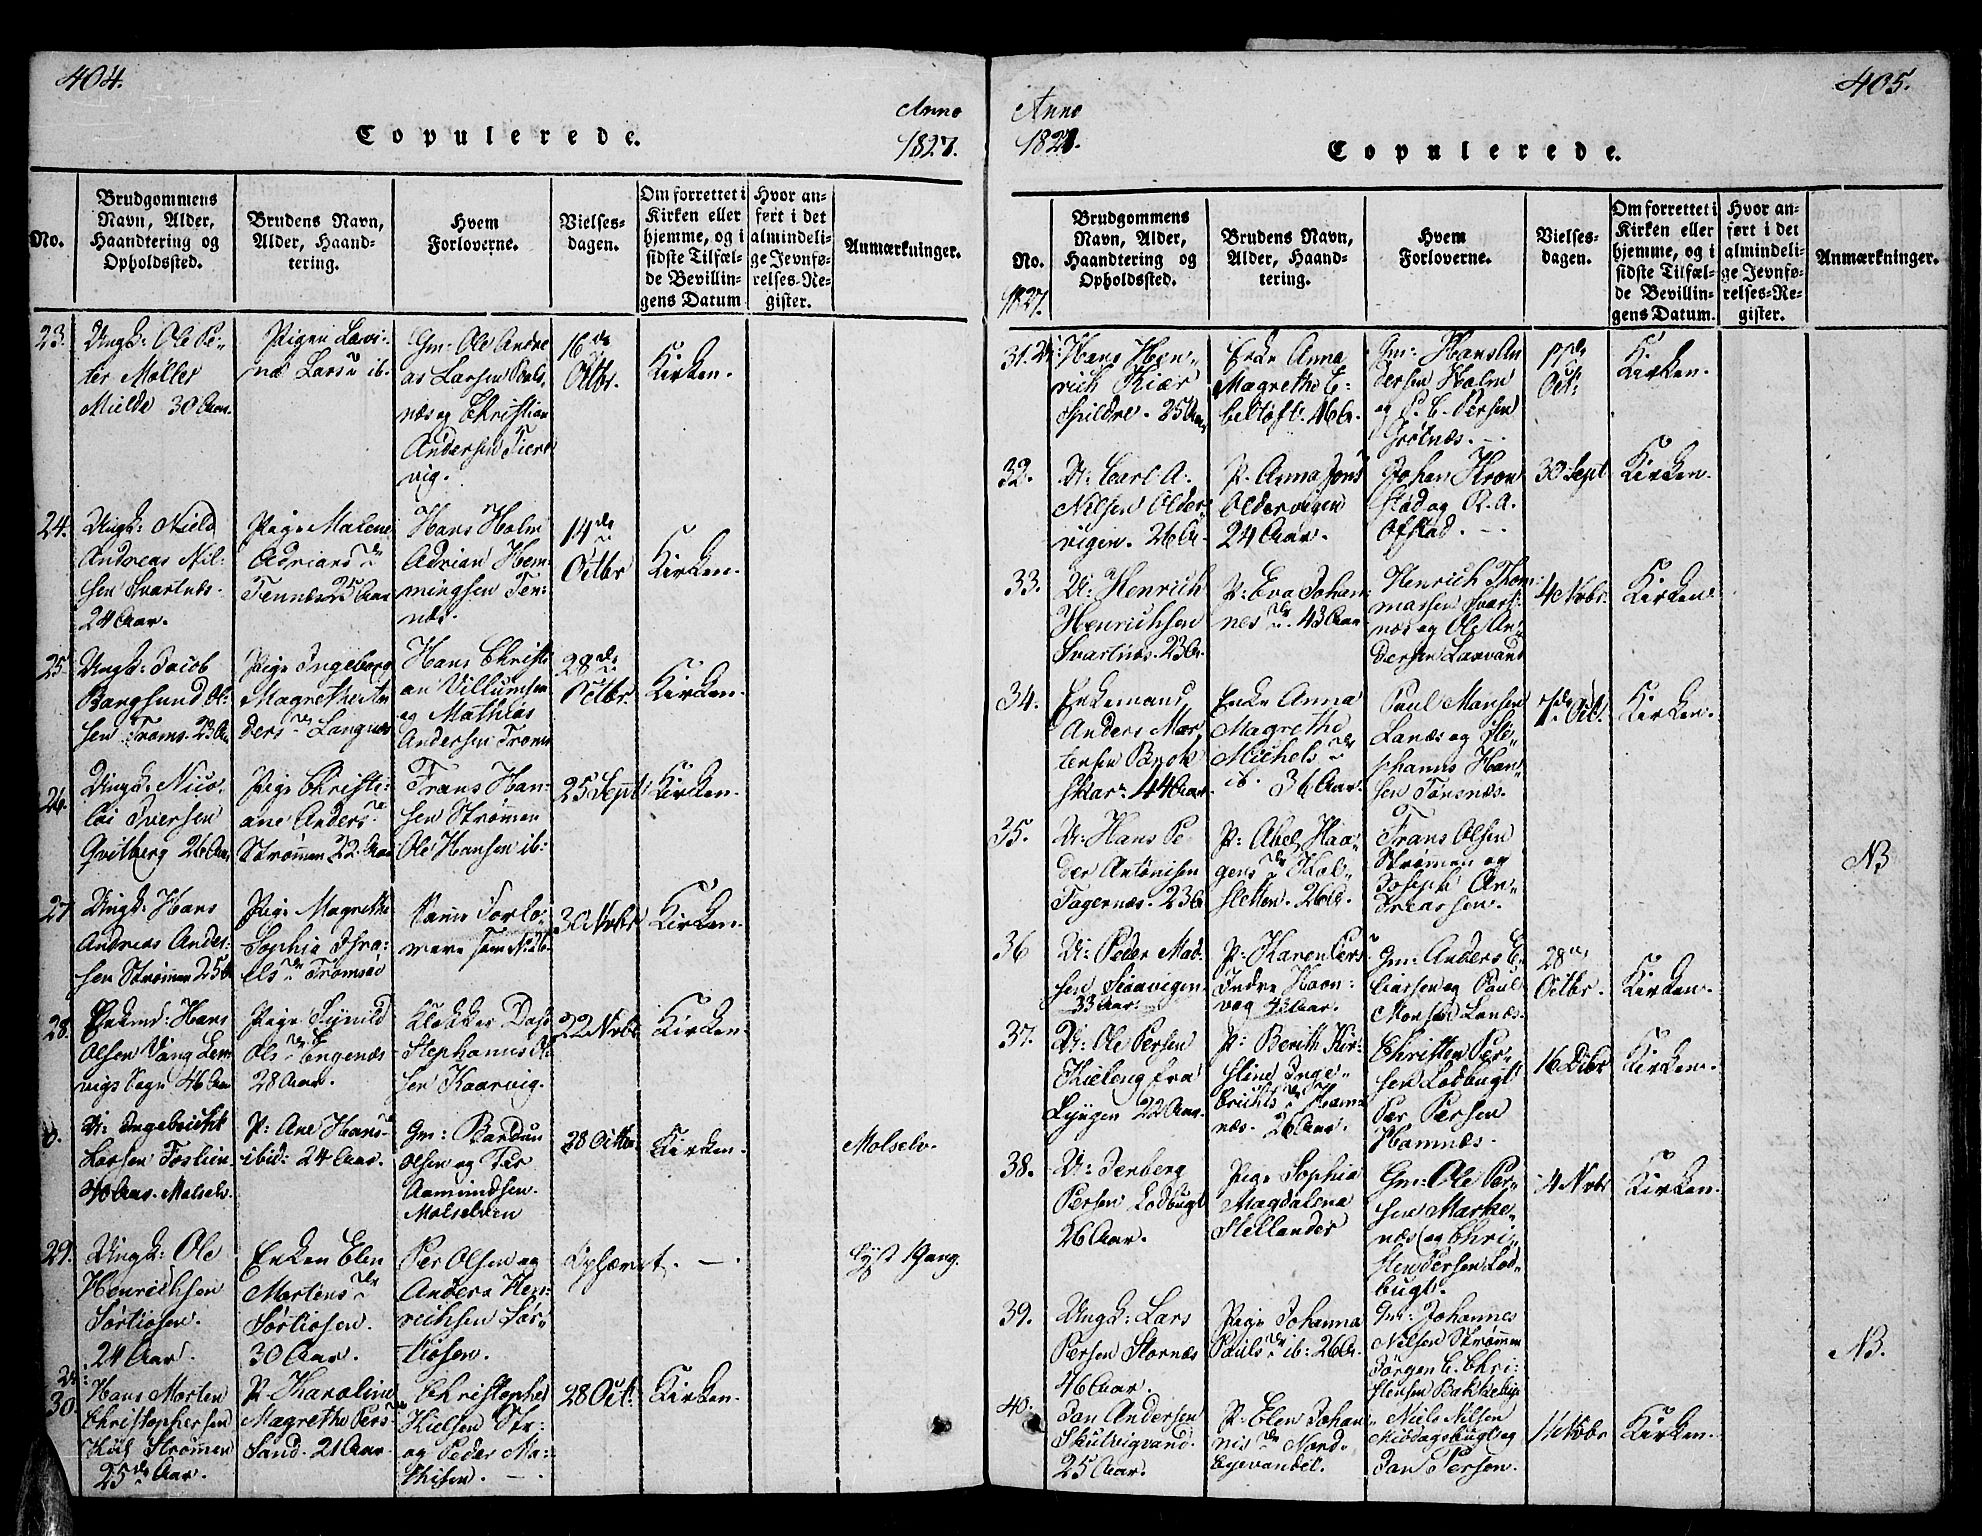 404.
Copulerede.
Anno
1827.
No.
Brudgommens
Navn, Alder,
Haandtering og
Opholdssted.
Brudens Navn,
Alder, Haand-
tering.
Hvem
Forloverne.
Vielses-
dagen.
Om forrettet i
Kirken eller
hjemme, og i
sidste Tilfæl-
de Bevillin-
gens Datum
Hvor an-
ført i det
almindeli-
ge Jevnfø-
relses-Re-
gister.
Anmærkninger.
23.
Ungk: Ole Pe-
ter Møller
30 Aar.
Pigen Lavi-
næ Lars ib.
Gm: Ole Andre
as Larsen
næs og Christian
Andersen
vig.
16de
Octbr.
Kirken.
24.
Ungk: Niels
Andreas Nil-
sen Svartnæs.
24 Aar.
Pige Malene
Adrians
Tennes 25 Aar
Hans Holm
Adrian Hem-
mingsen Ten-
næs.
14de
Octbr
Kirken.
25.
Ungk: Jacob
Bangsund Ol-
sen Troms. 23 Aar
Pige Ingeborg
Magrethe An
ders Langnæs
Hans Christi
an Villumsen
og Mathias
Andersen Troms
28de
Octbr.
Kirken.
26.
Ungk: Nico-
lai Iversen
Qvitberg 26 Aar
Pige Christi-
ane Anders
Strømmen 22 Aar
Frans Han-
sen Strømmen
Ole Hansen ib:
25 Sept:
Kirken.
27.
Ungk: Hans
Andreas Ander-
sen Strømmen 25
Pige Magrethe
Sophia Isra-
els Tromsøe
Samme Forlo-
vere som No 26.
30 Nvbr
Kirken.
28.
Enkmd: Hans
Olsen Vang Len-
vigs Sogn 46 Aar
Pige
Ols Engenæs
28 Aar.
Klokker Dass
Stephanus Ol
sen Kaarvig.
22 Nvbr
Kirken.
U: Ingebricht
Larsen Fosliin
Aar. Molselv.
P: Ane Hans
ibid: 24 Aar.
Gm: Bardun
Olsen og
Aamundsen.
Molselven
28 Octbr.
Kirken.
Molselv.
29.
Ungk: Ole
Henrichsen
Sørtiosen.
24 Aar.
Enken Elen
Mortens
Sørtiosen.
30 Aar.
Per Olsen og
Anders Hen-
richsen Sør-
tiosen.
Ophævet. —
Lyst 1 Gang.
30.
Hans Morten
Christophersen
Strømmen
25 Aar.
P: Karoline
Magrethe Pers
Sand. 21 Aar
Christopher
Nielsen Str:
og Peder Ma-
thisen. —
28 Oct:
Kirken.
405.
Anno
1827.
Copulerede.
No.
1827.
Brudgommens
Navn, Alder,
Haandtering og
Opholdssted.
Brudens Navn,
Alder, Haand-
tering.
Hvem
Forloverne.
Vielses-
dagen.
Om forrettet i
Kirken eller
hjemme, og i
sidste Tilfæl-
de Bevillin-
gens Datum.
Hvor an-
ført i det
almindeli-
ge Jevnfø-
relses-Re-
gister.
Anmærkninger.
31.
Hans Hen-
rich Kiær
Spildre. 25 Aar
Enke Anna
Magrethe E-
beltoft. 46 Aar.
Gm: Hans An
dersen Holm
og P. C. Persen
Grøtnæs. —
17de
Oct:
Kirken.
32.
U: Carl A:
Nilsen Older-
vigen. 26 Ar.
P: Anna Jons
Oldervigen
24 Aar.
Johan Kron
stad og R. A.
Ofstad. —
30 Sept
Kirken.
33.
U: Henrich
Henrichsen
Svartnæs. 23
P: Eva Johan-
nes 43 Aar
Henrich Thom
massen Svart-
næs og Ole An-
dersen Laxvand
4 Nvbr.
Kirken.
34.
Enkemand
Anders Mor-
tensen
skar: 44 Aar.
Enke Anna
Magrethe
Michels
ib. 36 Aar.
Paul Monsen
Lanæs og Ste-
phanus Han-
sen Tønsnæs.
7de Oct.
Kirken.
35.
U: Hans Pe
der Antonisen
Tagernæs. 23
P: Abel Haa-
gens Kal-
sletten. 26 Ar.
Frans Olsen
Strømmen og
Joseph An-
dreassen.
NB
36
U: Peder Mad-
sen
33 Aar.
P: Karen Pers
Indre Haan-
vog 43 Aar.
Gm: Anders E-
liassen og Paul
Monsen Lanæs.
28de
Octbr.
Kirken.
37.
U: Ole Persen
Kieleng fra
Lyngen 22 Aar.
P: Berith Kir-
stine Inge-
brichts Ham-
næs. 26 Aar
Christen Per-
sen Lodbugt
Per Persen
Hamnæs.
16 Dcbr
Kirken.
38.
U: Jenberg
Persen Lodbugt
26 Aar.
Pige Sophia
Magdalena
Hellander
Gm: Ole Per-
sen Marke-
næs og Chri-
sten Persen Lod-
bugt.
4 Nvbr
Kirken.
39.
Ungk: Lars
Persen Stornæs
46 Aar.
Pige Johanna
Pauls ib: 26 Ar.
Gm: Johannes
Nilsen Strømmen
Jørgen C. Chri-
stensen Bakkebye
NB.
40.
Jan Andersen
Skulvigvand.
25 Aar.
P: Elen Johan
nis Nord-
byevandet.
Niels Nilsen
Middagsbugt og
Jan Persen.
11 Nvbr
Kirken.